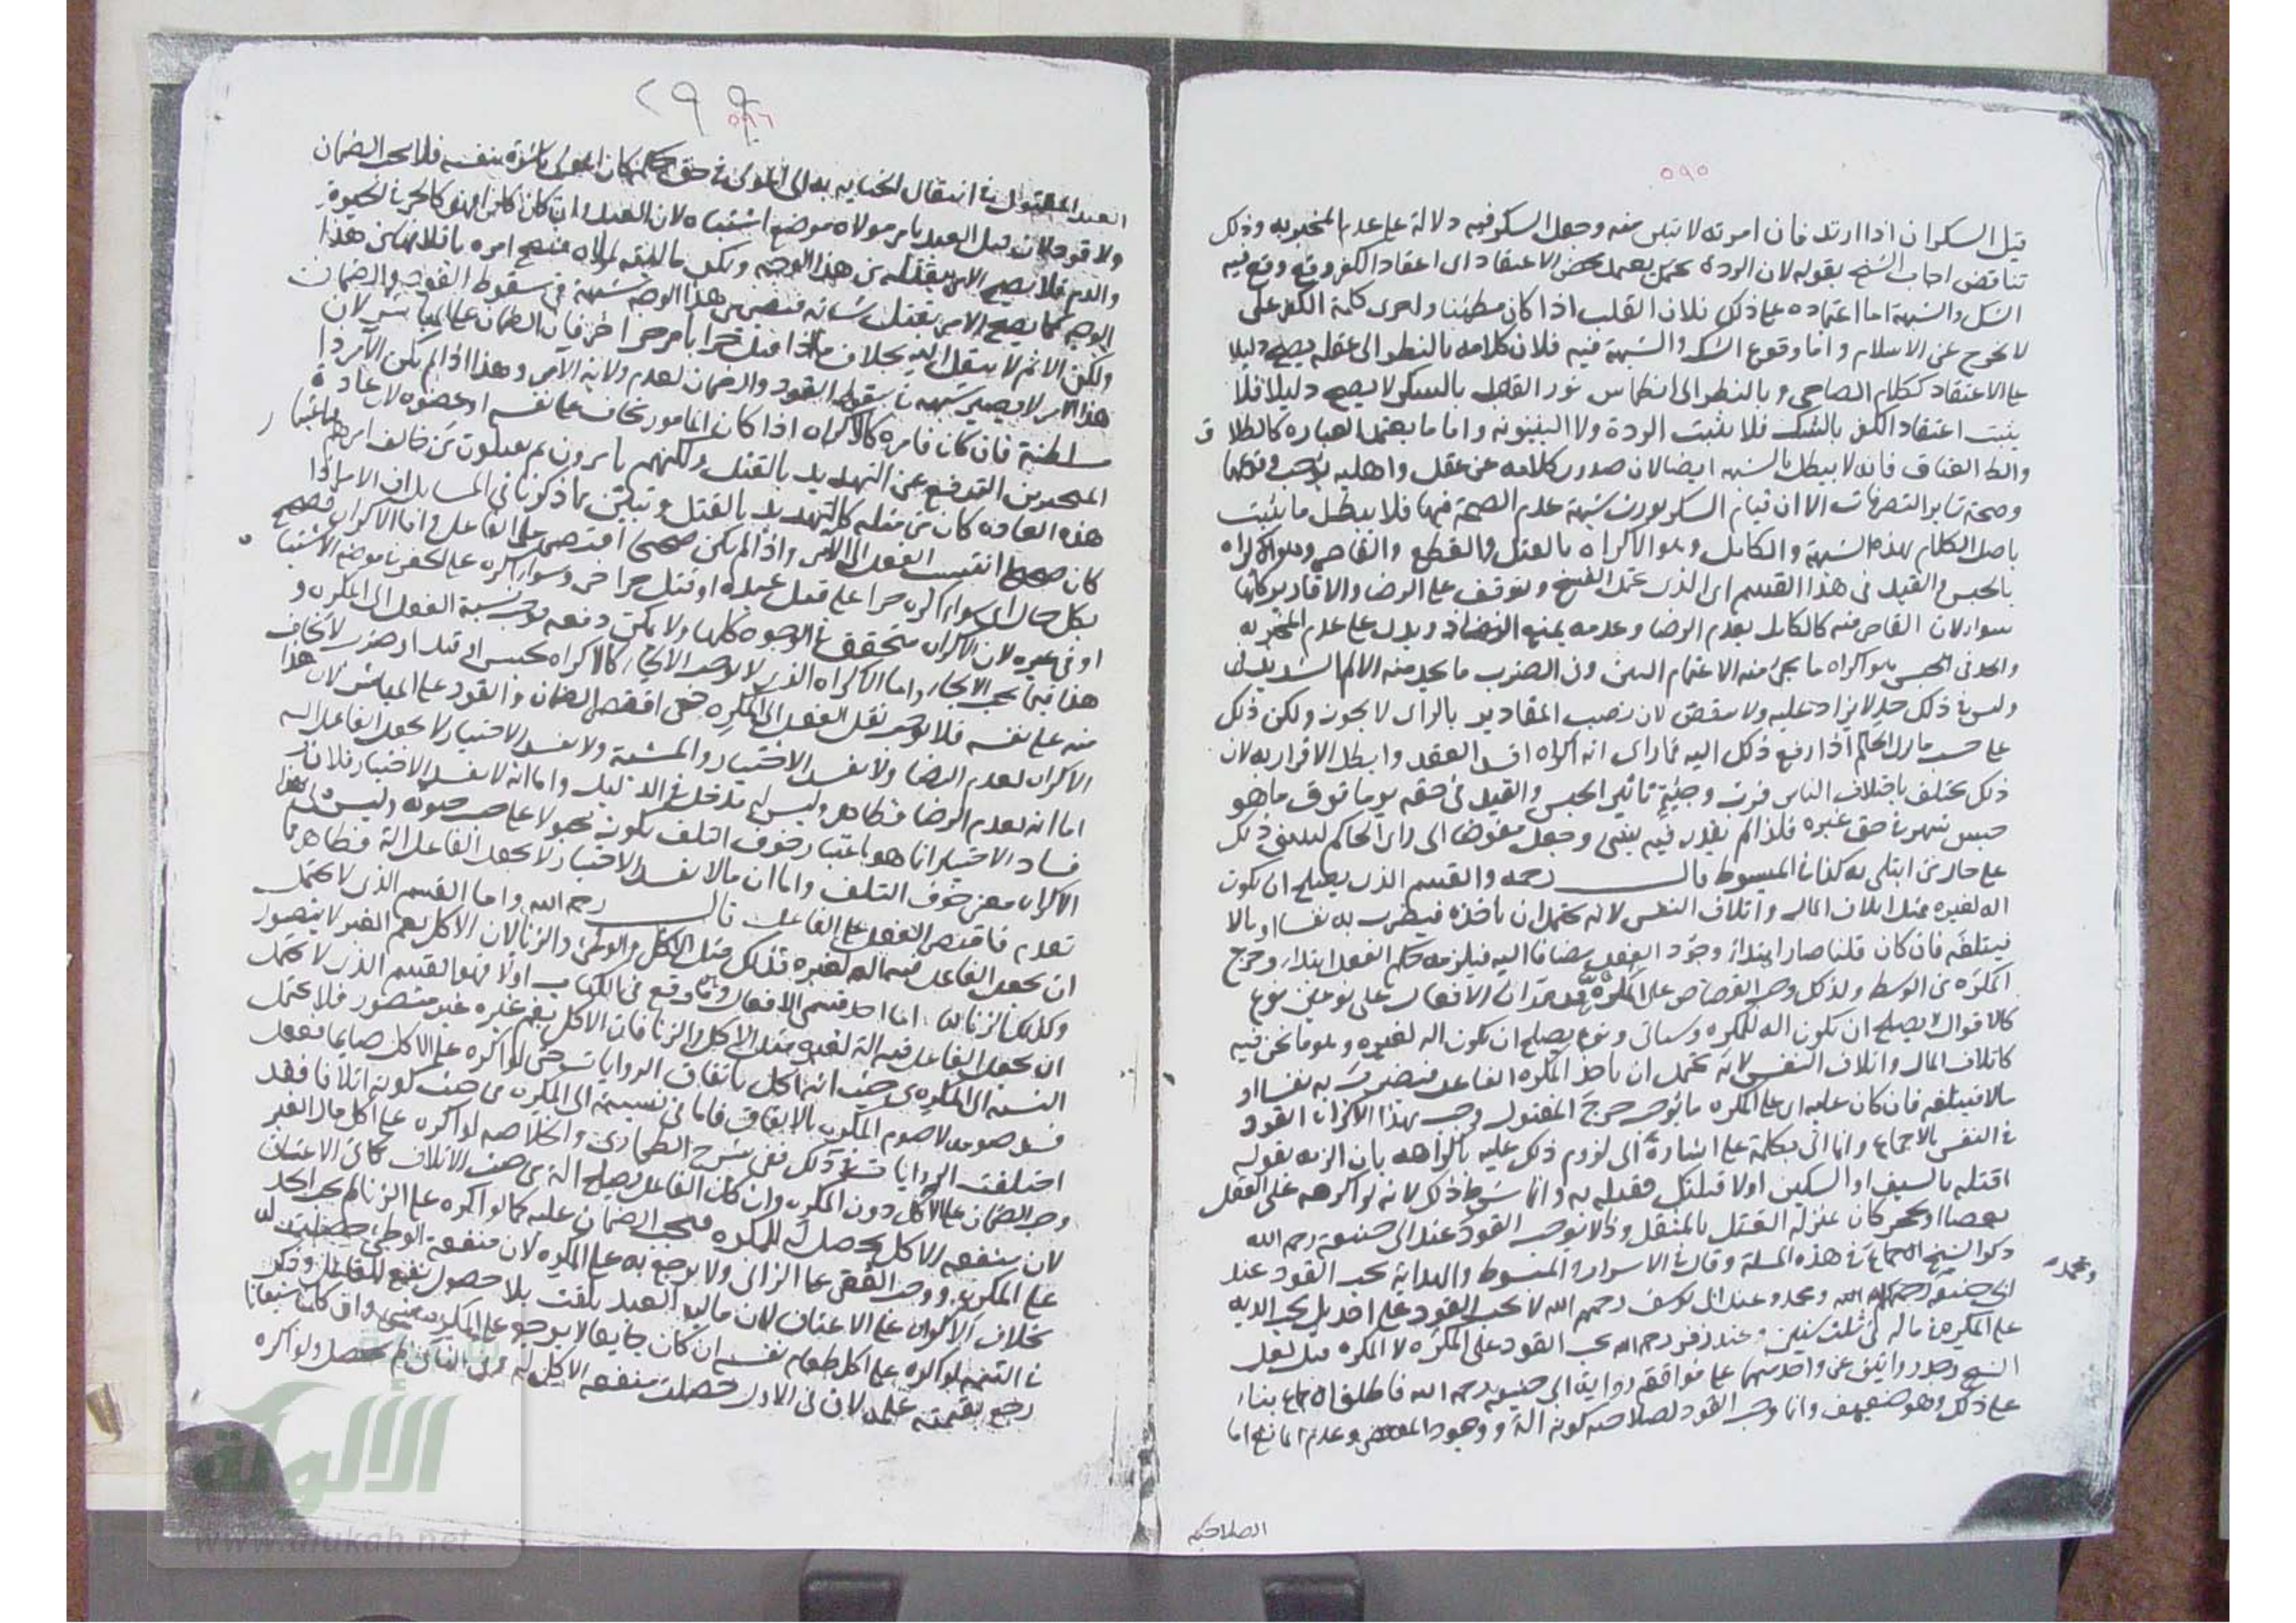 ٥٩٥
قيل السكران اذا ارتد فان امرته لا تبين منه وجعل السكر فيه دلالة على عدم المخبر به وذلك
تناقض اجاب الشيخ بقوله لان الردة تعتمد محض الاعتقاد اى اعتقاد الكفر وقع وقع فيه
الشك والشبهة اما اعتماده على ذلك فلان القلب اذا كان مطمئنا واجرى كلمة الكفر على
لا يخرج عن الاسلام واما وقوع الشك والشبهة فيه فلان كلامه بالنظر الى عقله يصلح دليلا
على الاعتقاد ككلام الصاحى وبالنظر الى انطماس نور العقل بالسكر لا يصلح دليلا فلا
يثبت اعتقاد الكفر بالشك فلا يثبت الردة ولا البينونة واما ما يعتمد العبارة كالطلاق
والعتاق فانه لا يبطل بالشبهة ايضا لان صدور كلامه عن عقل واهلية يوجب وقوعها
وصحة سائر التصرفات الا ان قيام السكر يورث شبهة عدم الصحة فيها فلا يبطل ما يثبت
باصل الكلام بهذه الشبهة والكامل وهو الاكراه بالقتل والقطع والقاصر وهو الاكراه
بالحبس والقيد فى هذا القسم اى الذى يحتمل الفسخ ويتوقف على الرضا والاقارير كلها
سواء لان القاصر فيه كالكامل يعدم الرضا وعدمه يمنع النفاذ ويدل على عدم المخبر به
والحد فى الحبس هو اكراه ما يجئ منه الاغتمام البين وفى الضرب ما يجد منه الالم الشديد
وليس فى ذلك حد لا يزاد عليه ولا ينقص لان نصب المقادير بالراى لا يجوز ولكن ذلك
على حسب ما يرى الحاكم اذا رفع ذلك اليه فما راى انه اكراه افسد العقد وابطل الاقرار به لان
ذلك يختلف باختلاف الناس فرب وجيه تاثير الحبس والقيد فى حقه يوما فوق ما هو
حبس شهر فى حق غيره فلذا لم يقدر فيه بشئ وجعل مفوضا الى راى الحاكم ليبنى ذلك
على حال من ابتلى به كذا فى المبسوط قال رحمه والقسم الذى يصلح ان يكون
اله لغيره مثل اتلاف المال واتلاف النفس لانه يحتمل ان ياخذه فيضرب به نفسا او مالا
فيتلفه فان كان قلنا صار ابتداء وجود الفعل مضافا اليه فيلزمه حكم الفعل ابتداء وخرج
المكره من الوسط ولذلك وجب القصاص على المكره قد مر ان الافعال على نوعين نوع
كالاقوال لا يصلح ان يكون اله للمكره وسياتى ونوع يصلح ان يكون اله لغيره وهو ما نحن فيه
كاتلاف المال واتلاف النفس لانه يحتمل ان ياخذ المكره الفاعل فيضرب به نفسا او
مالا فيتلفه فان كان عليه اى على المكره ما يوجب جرح المقتول وجب بهذا الاكراه القود
فى النفس بالاجماع وانما اتى بكلمة على اشارة الى لزوم ذلك عليه باكراهه بان امره بقوله
اقتله بالسيف او السكين او لاقتلنك فقتله به وانما شرط ذلك لانه لو اكرهه على القتل
بعصا او بحجر كان بمنزلة القتل بالمثقل وذا لا يوجب القود عند ابى حنيفة رحمه الله
ذكر الشيخ الاجماع فى هذه المسئلة وقال فى الاسرار والمبسوط والهداية يجب القود عند
ابى حنيفة رحمه الله ومحمد وعند ابى يوسف رحمهم الله لا يجب القود على احد بل يجب الدية
ومحمد
على المكره فى ماله فى ثلث سنين وعند زفر رحمه الله يجب القود على المكره لا المكره قيل لعل
الشيخ وجد روايتين عن واحد منهما على موافقة رواية ابى حنيفة رحمه الله فاطلق الاجماع بناء
على ذلك وهو ضعيف وانما وجب القود لصلاحيته كونه الة ووجود المقتضى وعدم المانع اما
الصلاحية
٢٩٩
٥٩٦
العبد المقتول فى انتقال الجناية به الى المولى فى حق
ولا قود لان قتل العبد بامر مولاه موضع اشتباه لان العبد وان كان لكنه كالحر فى الحيوة
والدم فلا يصح الامر بقتله من هذا الوجه ولكن مالية لمولاه فيصح امره باتلافه من هذا
الوجه كما يصح الامر بقتل شاته فيصير من هذا الوجه شبهة فى سقوط القود والضمان
ولكن الاثم لا ينتقل اليه بخلاف ما اذا قتل حرا بامر حر اخر فان الضمان على المباشر لان
هذا الامر لا يصير شبهة فى سقوط القود والضمان لعدم ولاية الآمر وهذا اذا لم يكن الآمر ذا
سلطنة فان كان فامره كالاكراه اذا كان المامور يخاف على نفسه او عضوه لان عادة
المتجبرين الترفع عن التهديد بالقتل ولكنهم يامرون ثم يقتلون من خالف امرهم فباعتبار
هذه العادة كان من مثله كالتهديد بالقتل وتبين بما ذكرنا فى المسايل ان الامر اذا
كان صحيحا انتسب الفعل الى الآمر واذا لم يكن صحيحا اقتصر على الفاعل واما الاكراه فصحيح
بكل حال اى سواء اكره حرا على قتل عبده او قتل حر اخر وسواء اكره على الحفر فى موضع الاشتباه
او فى غيره لان الاكراه متحقق فى الوجوه كلها ولا يمكن دفعه فوجب نسبة الفعل الى المكره و
هذا فيما يجب الالجاء واما الاكراه الذى لا يوجب الالجاء كالاكراه بحبس او قيد او ضرب لا يخاف
منه على نفسه فلا يوجب نقل الفعل الى المكره حتى اقتصر الضمان والقود على المباشر لان هذا
الاكراه لعدم الرضا ولا يفسد الاختيار والمشيئة ولا يفسد الاختيار لا يجعل الفاعل اله
اما انه يعدم الرضا فظاهر وليس له مدخل فى الدليل واما انه لا يفسد الاختيار فلان
فساد الاختيار انما هو باعتبار خوف التلف لكونه مجبولا على حب حيوته وليس فى هذا
الاكراه معنى خوف التلف واما ان ما لا يفسد الاختيار لا يجعل الفاعل الة فظاهر مما
تقدم فاقتصر الفعل على الفاعل قال رحمه الله واما القسم الذى لا يحتمل
ان يجعل الفاعل فيه اله لغيره فذلك مثل الاكل والوطئ والزنا لان الاكل بفم الغير لا يتصور
وكذلك الزنا اما احد قسمى الافعال وما وقع فى الكتاب اولا فهو القسم الذى لا يحتمل
ان يجعل الفاعل فيه الة لغيره مثل الاكل والزنا فان الاكل بفم غيره غير متصور فلا يحتمل
النسبة الى المكره من حيث انه اكل باتفاق الروايات حتى لو اكره على الاكل صايما بفعل
فسد صومه لا صوم المكره بالاتفاق فاما فى نسبته الى المكره من حيث كونه اتلافا فقد
اختلفت الروايات فى ذلك ففى شرح الطحاوى والخلاصه لو اكره على اكل مال الغير
وجب الضمان على الآكل دون المكره وان كان الفاعل يصلح الة من حيث الاتلاف كما فى الاعتاق
لان منفعة الاكل يحصل له لا للمكره فيجب الضمان عليه كما لو اكره على الزنا لم يجب الحد
على المكره ووجب العقر على الزانى ولا يرجع به على المكره لان منفعة الوطئ حصلت له
بخلاف الاكراه على الاعتاق لان مالية العبد تلفت بلا حصول نفع للفاعل وذكر
فى التتمة لو اكره على اكل طعام نفسه ان كان جايعا لا يرجع على المكره بشئ وان كان شبعانا
رجع بقيمته عليه لان فى الاول حصلت منفعة الاكل له وفى الثانى لم يحصل ولو اكره
الألوكة
www.alukah.net